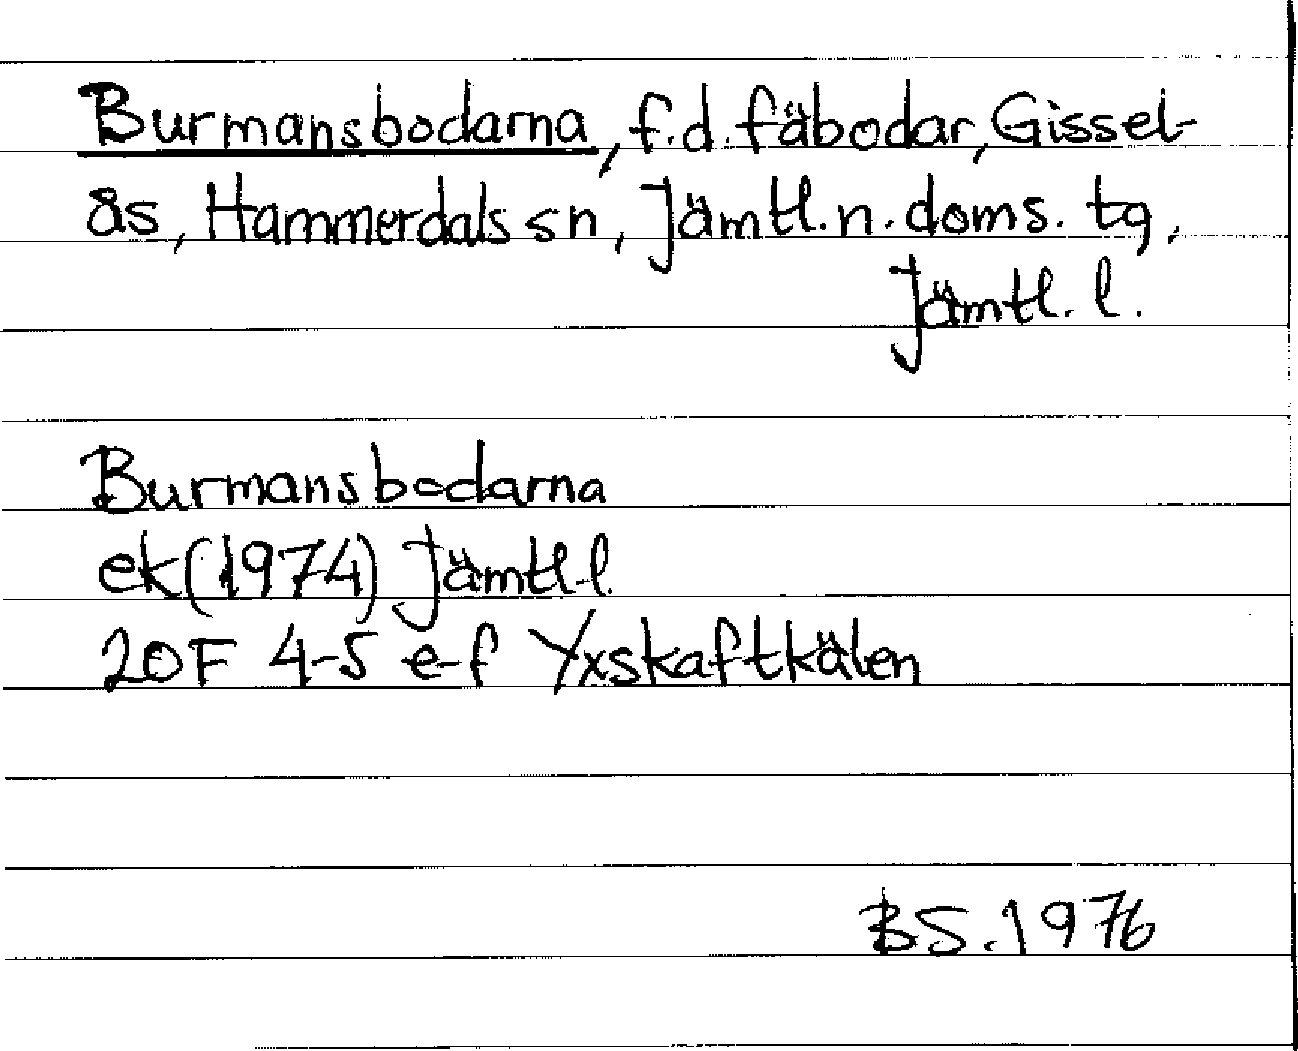 Burmansbodarna, f.d. fäbodar, Gissel-
ås, Hammerdals sn, Jämtl. n. doms. tg,
Jämtl. l.
Burmansbodarna
ek (1974) Jämtl. l.
20F 4-5 e-f Yxskaftkälen
BS. 1976